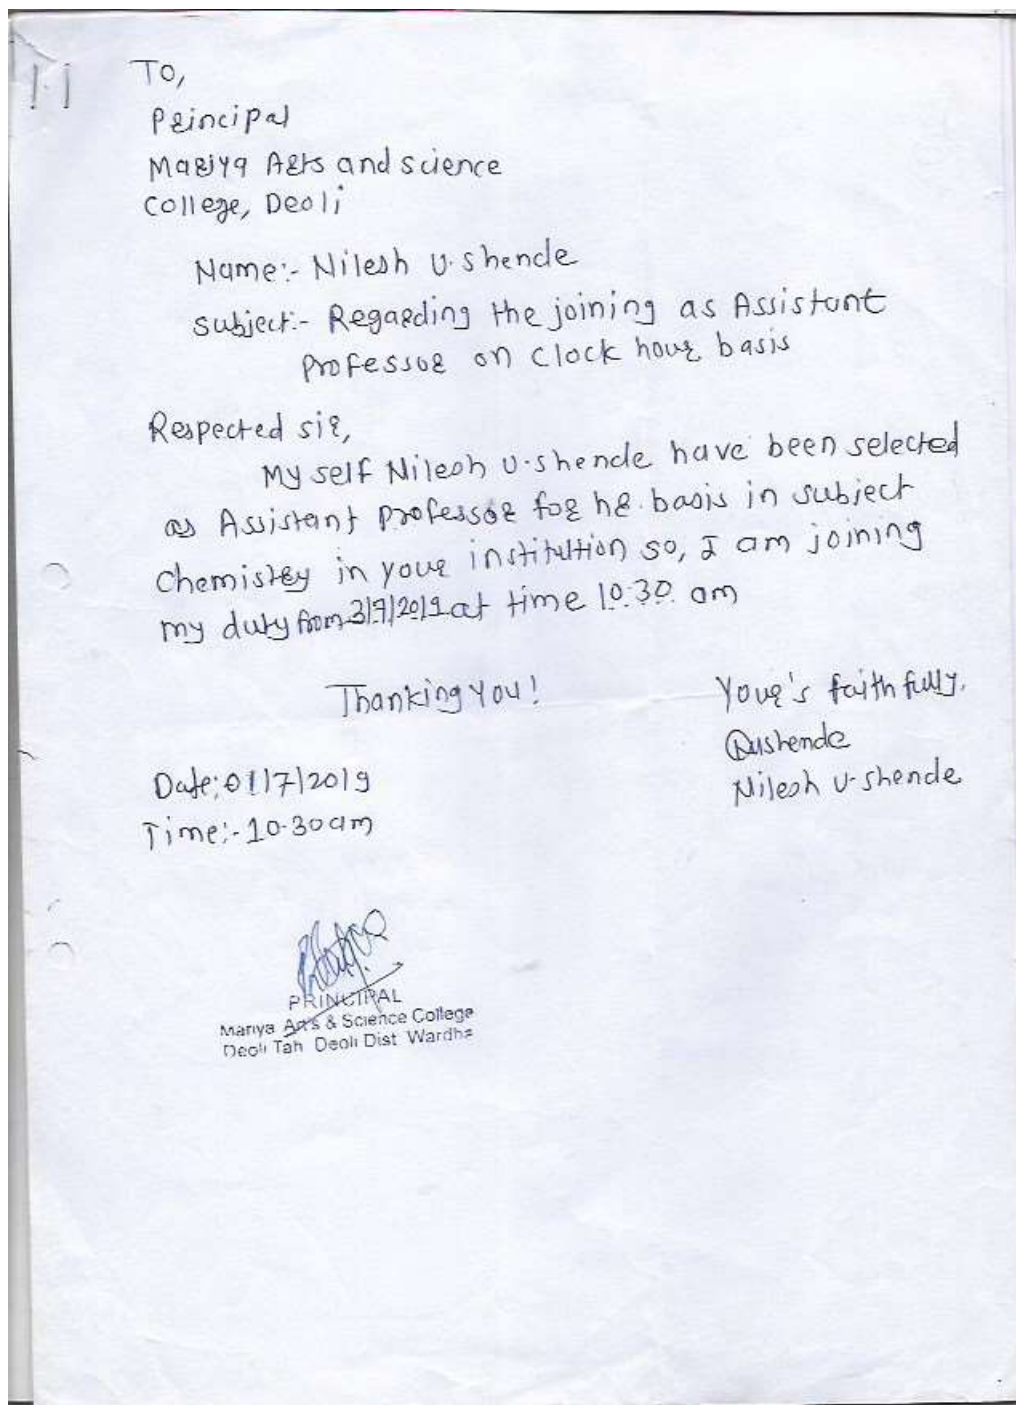 To,
Principal
Mariya Arts and science
College, Deoli
Name:- Nilesh U. Shende
Subject:- Regarding the joining as Assistant
Professor on Clock hour basis
Respected sir,
My self Nilesh U. Shende have been selected
as Assistant Professor for hr. basis in subject
Chemistry in your institution so, I am joining
my duty from 3/7/2019 at time 10:30 am
Thanking You!
Your's faithfully,
Nushende
Nilesh U. Shende
Date: 01/7/2019
Time:- 10.30 am
PRINCIPAL
Mariya Arts & Science College
Deoli Tah Deoli Dist Wardha